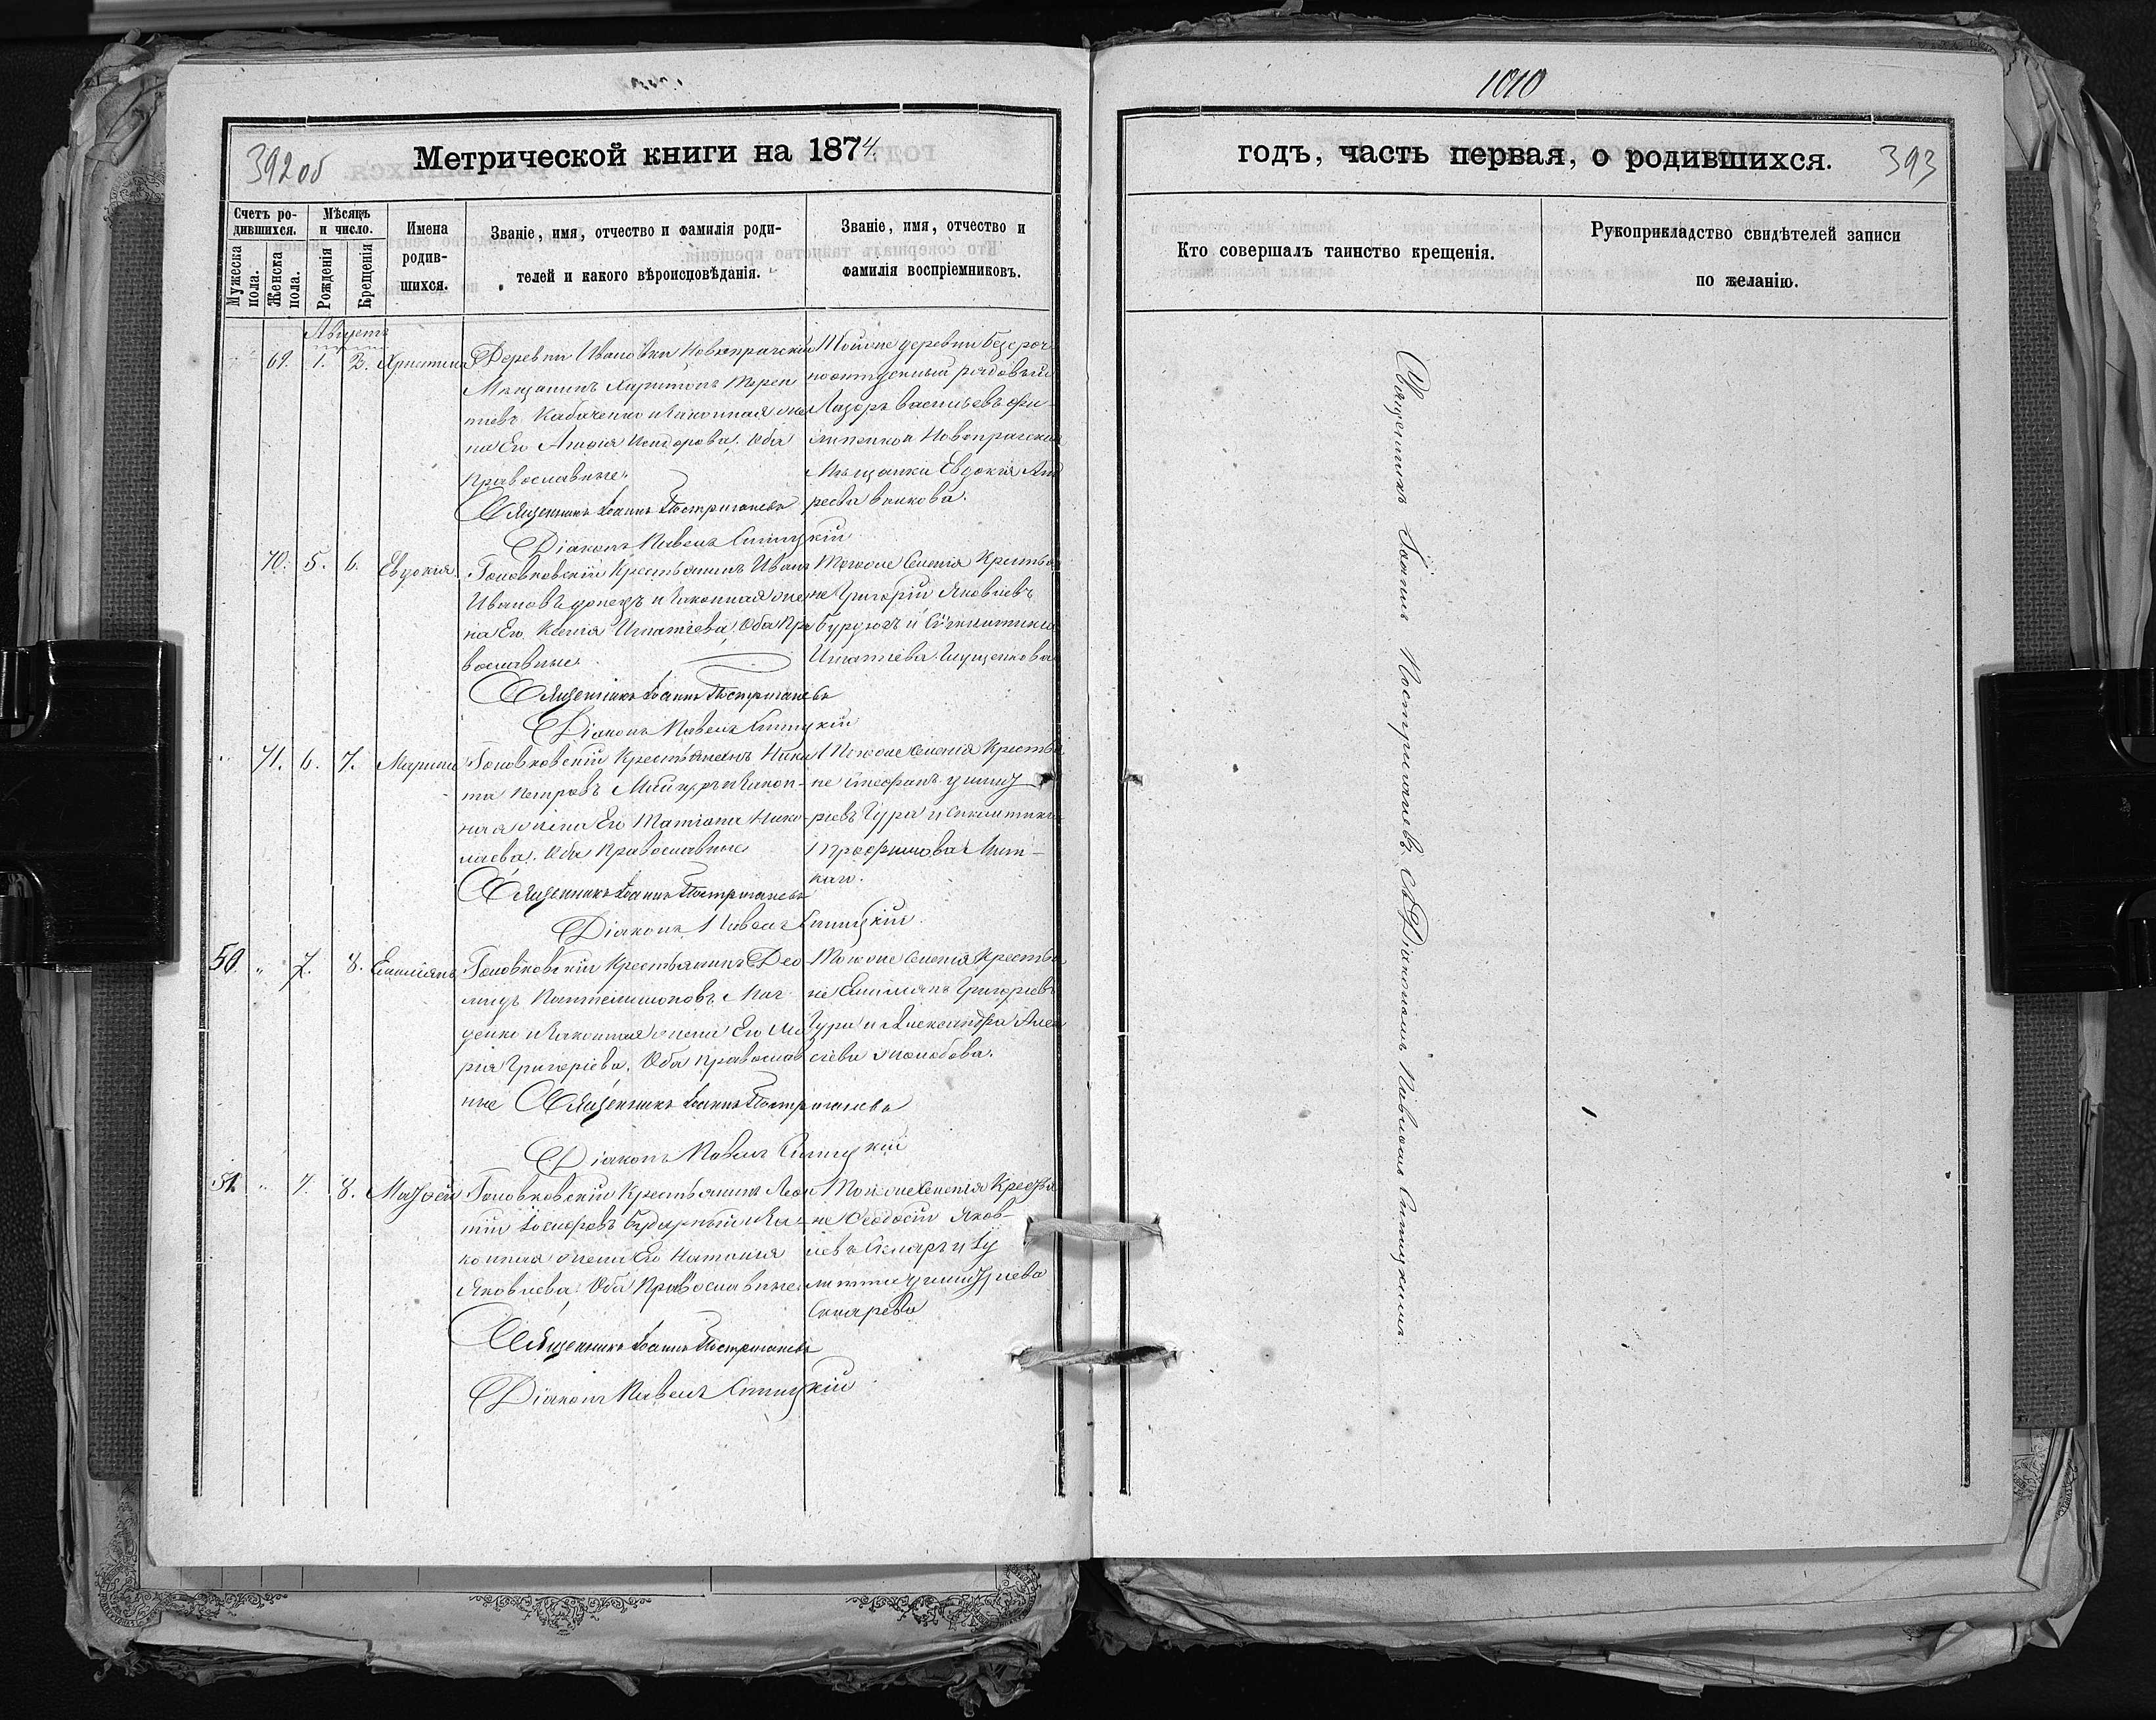 1010
392 об
Метрической книги на 1874
Счетъ родившихся.
Мѣсяцъ и число.
Мужеска пола.
Женска пола.
Рожденія
Крещенія
Имена родив-
шихся.
Званіе, имя, отчество и фамилія роди-
телей и какого вѣроисповѣданія.
Званіе, имя, отчество и
фамилія воспріемниковъ.
Августъ
69. 1. 2. Христина
Деревни Ивановки Новопражскій
Мѣщанинъ Харитонъ Терен
тіевъ Кабаченко и законная же
на Его Агафія Исидорова, Оба
Православные.
Священникъ Іоаннъ Постригачевъ
Діаконъ Павелъ Синицкій
Тойже деревни безсроч
ноотпускный рядовый
Лазарь Васильевъ
и Новопражская
Мѣщанка Евдокія Анд
реева
70. 5. 6. Евдокія
Головковскій Крестьянинъ Иванъ
Ивановъ Донецъ и законная же
на Его Ксенія Игнатіева, Оба Пра
вославные.
Священникъ Іоаннъ Постригачевъ
Діаконъ Павелъ Синицкій
Тогоже Селенія Крестья
не Григорій Яковлевъ
Бурдюгъ и Синклитикія
Игнатіева Глущенкова
71. 6. 7. Марина
Головковскій Крестьянинъ Ники
та Петровъ и закон-
ная жена Его Татіана Нико-
лаева, Оба Православные
Священникъ Іоаннъ Постригачевъ
Діаконъ Павелъ Синицкій.
Тогоже Селенія Крестья
не Стефанъ Димит
ріевъ Гура и Синклитикія
Трофимова
50. " 7. 8. Емиліанъ
Головковскій Крестьянинъ Део-
мидъ Пантелимоновъ
и законная жена Его Ма
рія Григоріева, Оба Православ
ные Священникъ Іоаннъ Постригачевъ
Діаконъ Павелъ Синицкій
Тогоже Селенія Крестья
не Емиліанъ Григоріевъ
Гура и Александра Алек
сіева
51. " 7. 8. Матѳей
Головковскій Крестьянинъ Леон
тій Іосифовъ и За-
конная жена Его Наталія
Яковлева, Оба Православные
Священникъ Іоаннъ Постригачевъ
Діаконъ Павелъ Синицкій
Тогоже Селенія Крестья
не Ѳеодосій Яков-
левъ Скляръ и Іу
литта Димитріева
Склярева
годъ, часть первая, о родившихся.
393
Кто совершалъ таинство крещенія.
Рукоприкладство свидѣтелей записи
по желанію.
Священникъ Іоаннъ Постригачевъ съ Діакономъ Павломъ Синицкимъ.